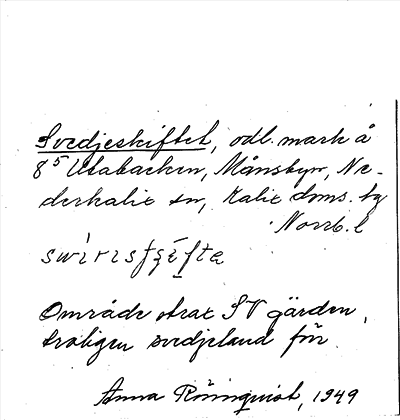 Svedjeskiftet, odl. mark å
8⁵ Utabacken, Månsbyn, Ne-
derkalix sn, Kalix doms. tg
Norrb. l
Område strax SV gården,
troligen svedjeland förr
Anna Rönnquist, 1949